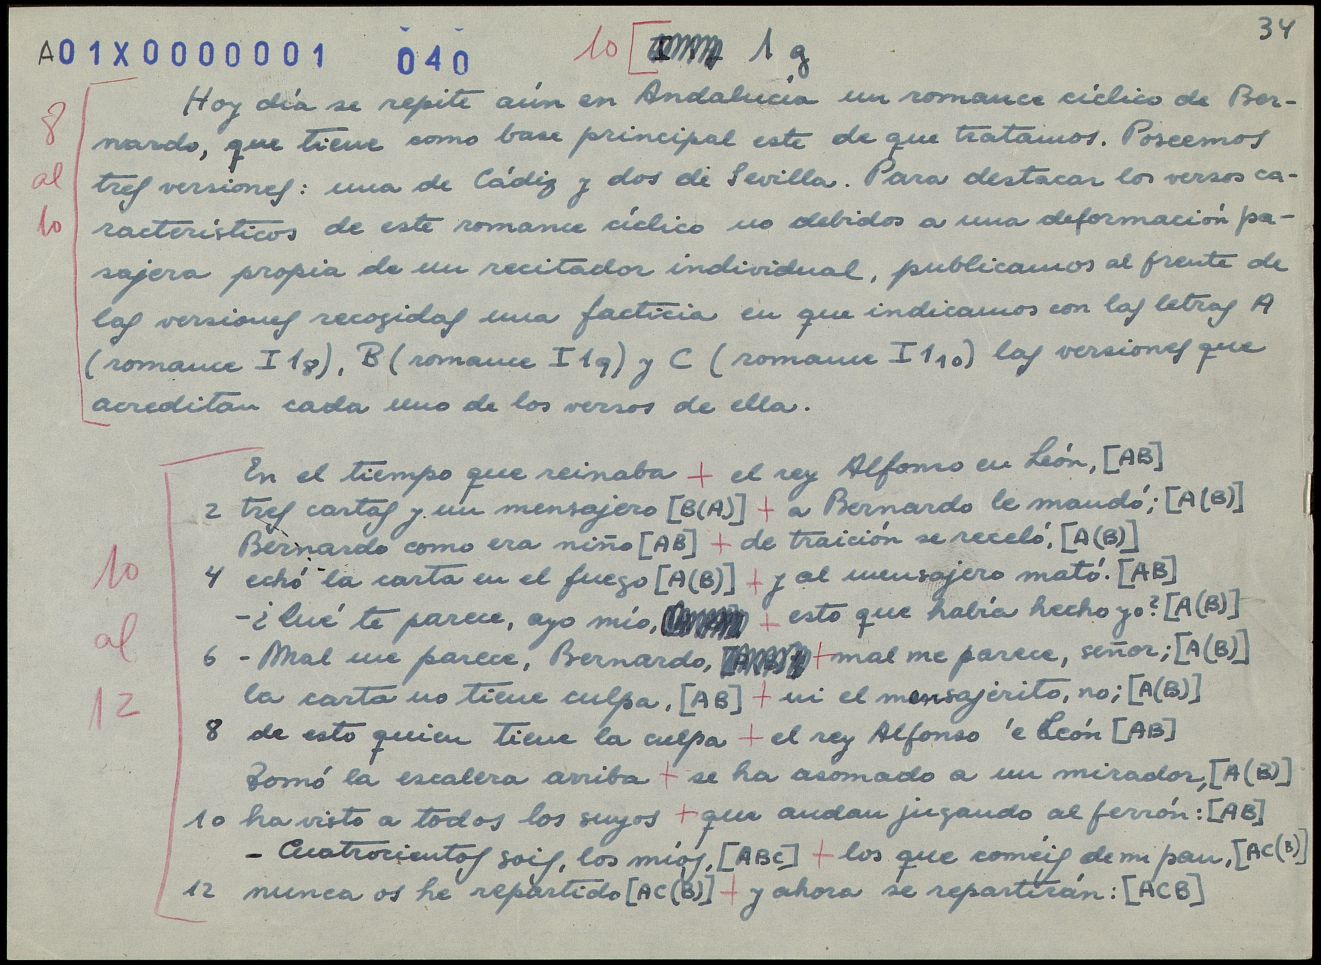 A01X0000001 040 10 [ 1 g 34
Hoy día se repite aún en Andalucía un romance cíclico de Ber-
8 nardo, que tiene como base principal este de que tratamos. Poseemos
al tres versiones: una de Cádiz y dos de Sevilla. Para destacar los versos ca-
10 racterísticos de este romance cíclico no debidos a una deformación pa-
sajera propia de un recitador individual, publicamos al frente de
las versiones recogidas una facticia en que indicamos con las letras A
(romance I 1 8), B (romance I 1 9) y C (romance I 1 10) las versiones que
acreditan cada uno de los versos de ella.
En el tiempo que reinaba + el rey Alfonso en León, [AB]
2 tres cartas y un mensajero [B(A)] + a Bernardo le mandó; [A(B)]
Bernardo como era niño [AB] + de traición se receló; [A(B)]
4 echó la carta en el fuego [A(B)] + y al mensajero mató. [AB]
-¿Qué te parece, ayo mío, + esto que había hecho yo? [A(B)]
6 - Mal me parece, Bernardo, + mal me parece, señor; [A(B)]
la carta no tiene culpa, [AB] + ni el mensajerito, no; [A(B)]
8 de esto quien tiene la culpa + el rey Alfonso 'e León [AB]
Tomó la escalera arriba + se ha asomado a un mirador, [A(B)]
10 ha visto a todos los suyos + que andan jugando al ferrón: [AB]
- Cuatrocientos sois, los míos, [ABC] + los que coméis de mi pan, [AC(B)]
12 nunca os he repartido [AC(B)] + y ahora se repartirán: [ACB]
10
al
12